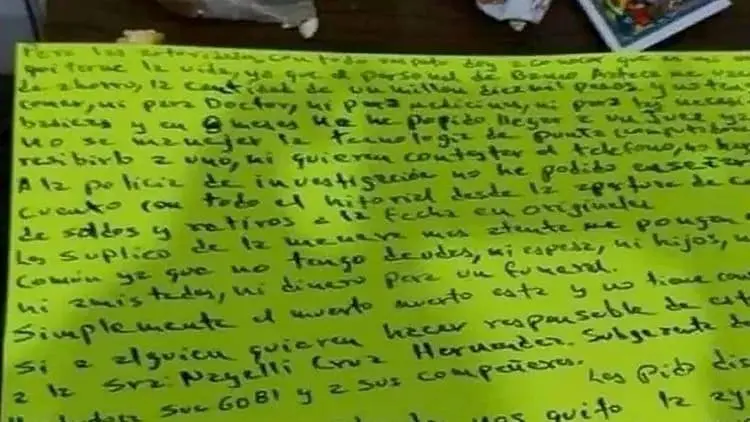 Para las autoridades, con todo respeto doy a conocer que es mi
quiterme la vida, ya que el personal de Banco Azteca me
de ahorro, la cantidad de un millon diez mil pesos y no ten
comer, ni para Doctor, ni para medicinas, ni para las necesi
basicas y en 8 meses no he podido llegar a un Juez ya
no se manejar la tecnologia de punta (computador
resibirlo a uno, ni quieren contestar el telefono, no hay
A la policia de investigación no he podido enseñar
cuento con todo el hitorial desde la apetura de c
de saldos y retiros a la fecha en originales
Los suplico de la manera mas atenta me pongan
Comun ya que no tengo deudos, ni esposa, ni hijos,
ni amistades, ni dinero para un funeral.
Simplemente el muerto muerto esta y no tiene
Si a alguien quieren hacer responsable de est
a la Sra: Nayelli Cruz Hernandez. Subgerente d
Suc GOBI y a sus compañeros.
Les pido dis
nos quito la ay